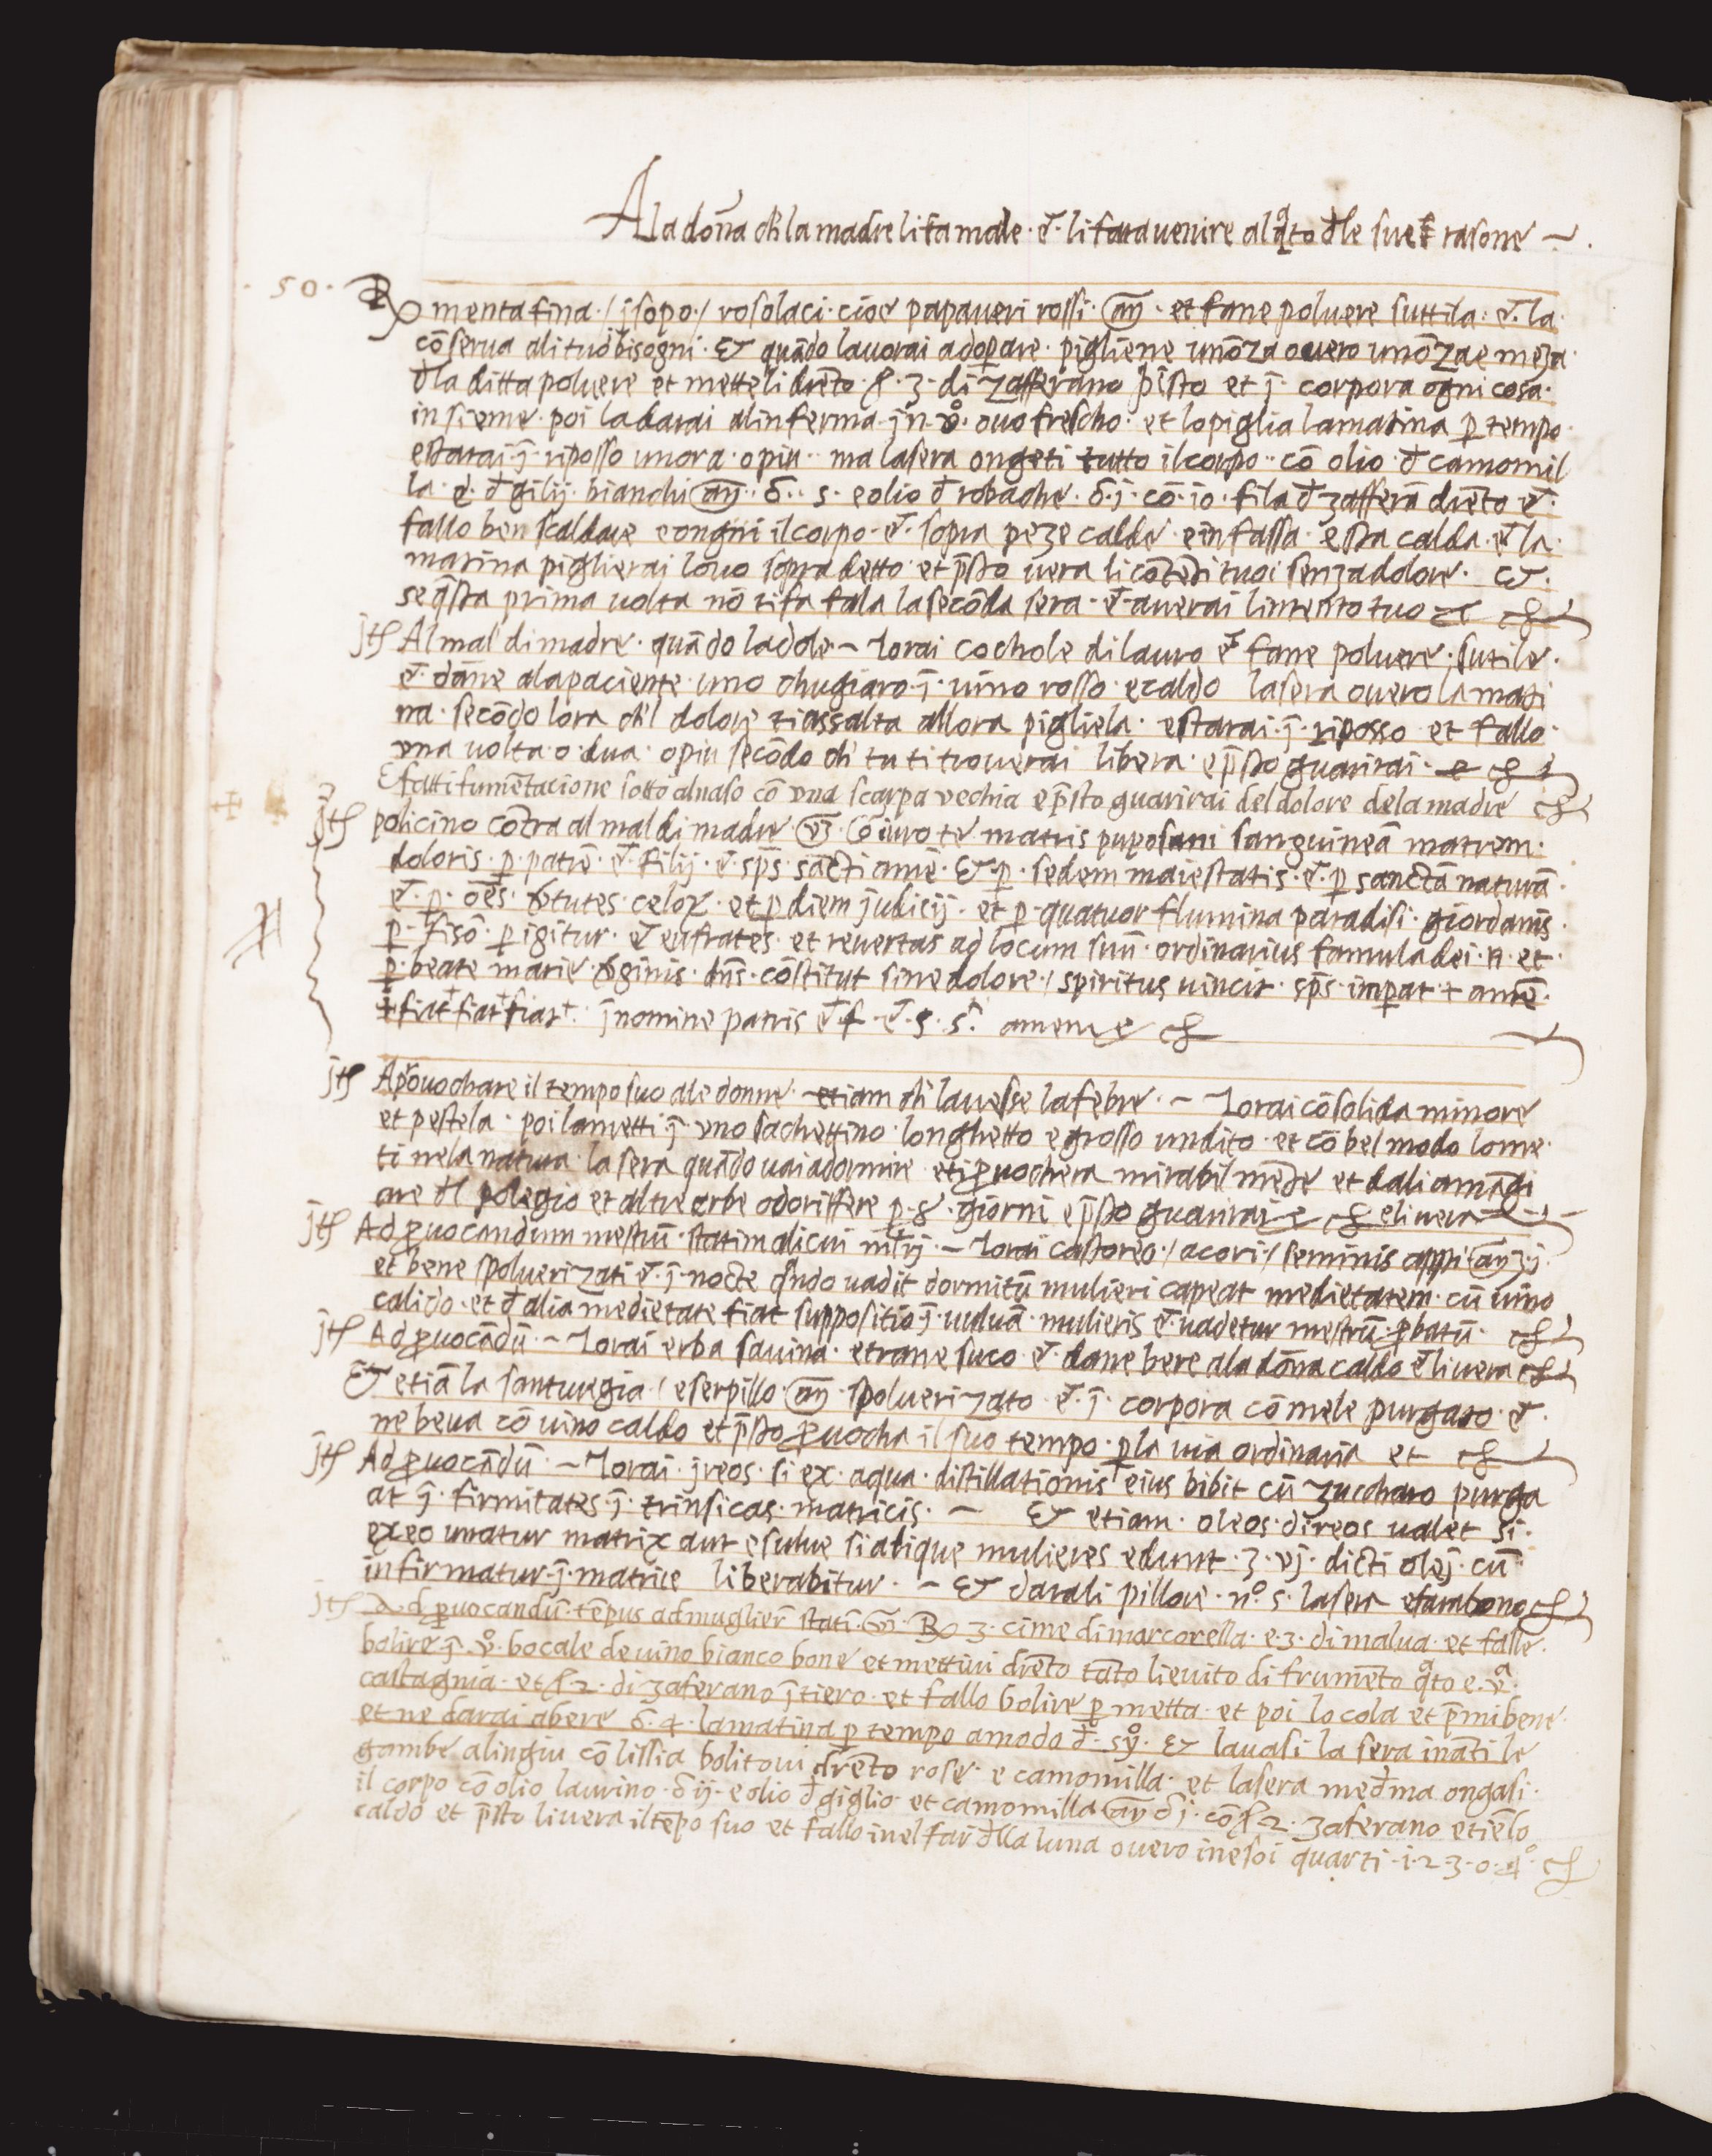 A la dōna ch̄ la madre li fa male · et · li fara venire al q̄to d̄le sue rasone ~ .
· 50 · ℞ menta fina · / jsopo · / rosolaci · cioe papaveri rossi · an̄ · et fane polvere suttila : et · la ·
cōserva ali tuoi bisogni · Et quādo lavorai adop̄are · pigliene unōza overo unōza e meza ·
d̄la ditta polvere et metteli drēto · ꝭ · 3 · di zafferano pisto et j̄ · corpora ogni cosa ·
insieme · poi la darai alinferma · jn · vº · ovo frescho · et lo piglia la matina p̄ tempo ·
e starai · j̄ · riposso unora · o piu · · ma la sera ongeti tutto il corpo · · cō olio · d̄ camomil
la · e · d̄ gilij · bianchi an̄ · · δ · · s · e olio d̄ robache · δ · j · cō · io · fila d̄ zafferā drēto et ·
fallo ben scaldare e ongni il corpo · et · sopra peze calde · e infassa · e sta calda · et la ·
matina piglierai lovo sopra detto · et p̄sto vera li cōtēti tuoi senza dolore · Et ·
se q̄sta prima volta nō ti fa fala la secōda sera · et · averai lintento tuo
jtē Al mal di madre · quādo la dole · ~ Torai cochole di lauro et fane polvere · sutile ·
et · dāne ala paciente · uno chugiaro · j̄ · vino rosso · e caldo la sera overo la mati
na · secōdo lora ch̄ l dolore ti assalta allora pigliela · e starai · j̄ · riposso et fallo ·
una volta · o · dua · o piu secōdo ch̄ tu ti troverai libera · e p̄sto guarirai ·
E fatti fumētacione sotto al naso cō una scarpa vechia e p̄sto guarirai del dolore de la madre
jtē policino cōtra al mal di madre vz Cōiuro te matris puposani sanguineā matrem ·
doloris · p̄ · patrē · et · filij · et · sp̄s · sācti amē · Et · p̄ · sedem maiestatis · et · p̄ sanctā naturā ·
et · p̄ · oēs · v̄tutes · celoꝝ · et p̄ diem judicij · et p̄ · quatuor flumina paradisi · giordanis ·
p̄ · fisō · p̄ igitur · et eufrates · et revertas ad locum suū · ordinarius famula dei · n · et ·
p̄ · beate marie v̄ginis · dn̄s · cōstitut sine dolore · / spiritus vincit · sp̄s · imp̄at · + amē ·
+ fiat + fiat + fiat + · j̄ nomine patris et f · et · s · s · amen
jtē A p̄vochare il tempo suo ale donne · etiam ch̄ lavesse la febre · ~ Torai cōsolida minore
et pestela · poi la metti j̄ uno sachettino · longhetto e grosso un dito · et cō bel modo lo me ·
ti nela natura · la sera quādo vai a dormire · e ti p̄vochera mirabil mēte et dali a māgi
are d̄l polegio et altre erbe odoriffere p̄ · 8 · giorni e p̄sto guarirai e li vera
jtē Ad p̄vocandum mestruū · statim alicui · ~ Torai castoreo · / acori · / seminis appi an̄ ʒ · j ·
et bene spolverizati et · j̄ · nocte q̄ndo vadit dormitū mulieri capeat medietatem · cū vino
calido · et d̄ alia medietate fiat suppositio j̄ · vulvā · mulieris et · vadetur mestrū · p̄batū ·
jtē Ad p̄vocādū · ~ Torai erba savina · e trane suco · et · dane bere ala dōna caldo et li vera
Et etiā la santuregia · / e serpillo an̄ · spolverizato · et · j̄ · corpora cō mele purgato · et ·
ne beva cō vino caldo et p̄sto p̄vocha il suo tempo · p̄ la via ordinaria et
jtē Ad p̄vocādū · ~ Torai · jreos · si ex · aqua · distillationis eius bibit cū zuccharo purga
at j̄ · firmitates · j̄ · trinsicas · matricis · ~ Et etiam · oleos · direos valet si ·
ex eo unatur matrix aut e sulve si alique mulieres edunt · ʒ · vj · dicti olej · cū
infirmatur · j̄ · matrice liberabitur · ~ Et darali pillore · nº · 5 · la sera e fara bono
jtē Ad p̄vocandū · tēpus ad muglierē stati · vz · ℞ 3 · cime di marcorella · e · 3 · di malva · et falle ·
bolire j̄ · vº · bocale de vino bianco bone et mettivi drēto tāto lievito di frumēto q̄to e · vª ·
castagnia · et ꝭ · 2 · di zaferano j̄tiero · et fallo bolire p̄ metta · et poi lo cola et p̄mi bene ·
et ne darai a bere δ · 4 · la matina p̄ tempo a modo d̄ · syº · Et lavasi la sera ināti le
gambe alingiu cō lissia bolitovi drēto rose · e camomilla · et la sera med̄ma ongasi ·
il corpo cō olio laurino · δ ij · e olio d̄ giglio et camomilla an̄ δ j · cō ꝭ 2 · zaferano e tiēlo
caldo et p̄sto li vera il tēpo suo et fallo inel far d̄lla luna overo ine soi quarti · i · 2 · 3 · o · 4º ·